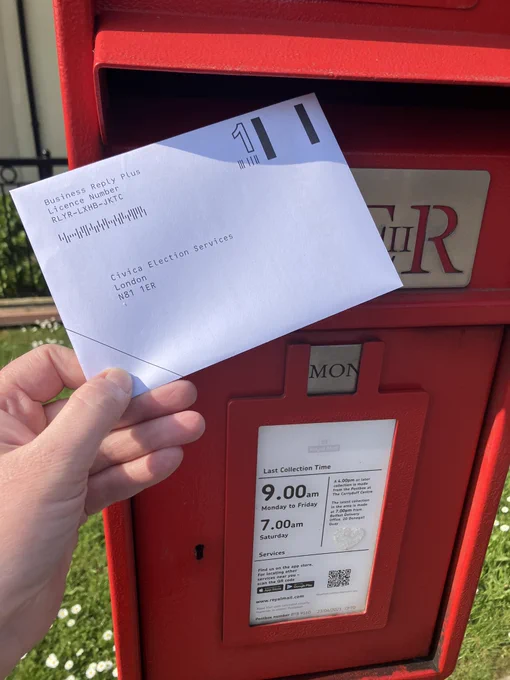 1
Business Reply Plus
Licence Number
RLYR-LXHB-JKTC
Civica Election Services
London
N81 1ER
E II R
MON
Royal Mail
Last Collection Time
9.00am
Monday to Friday
7.00am
Saturday
A 6.00pm or later
collection is made
from the Postbox at
The latest collection
in the area is made
at 7.00pm from
Belfast Delivery
Office, 20 Donegall
Services
Find us on the app store.
For locating other
services near you -
scan the QR code.
App Store
Google Play
www.royalmail.com
Postbox number